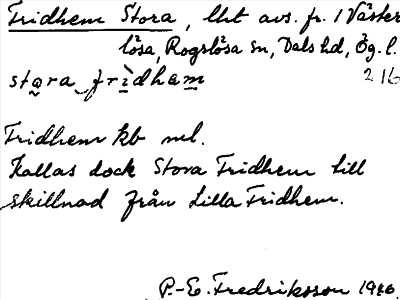 Fridhem Stora, lht avs. fr. 1 Väster
lösa, Rogslösa sn, Dals hd, Ög. l.
stara fridham 216
Fridhem kb nel.
Kallas dock Stora Fridhem till
skillnad från Lilla Fridhem.
P.-E. Fredriksson 1946